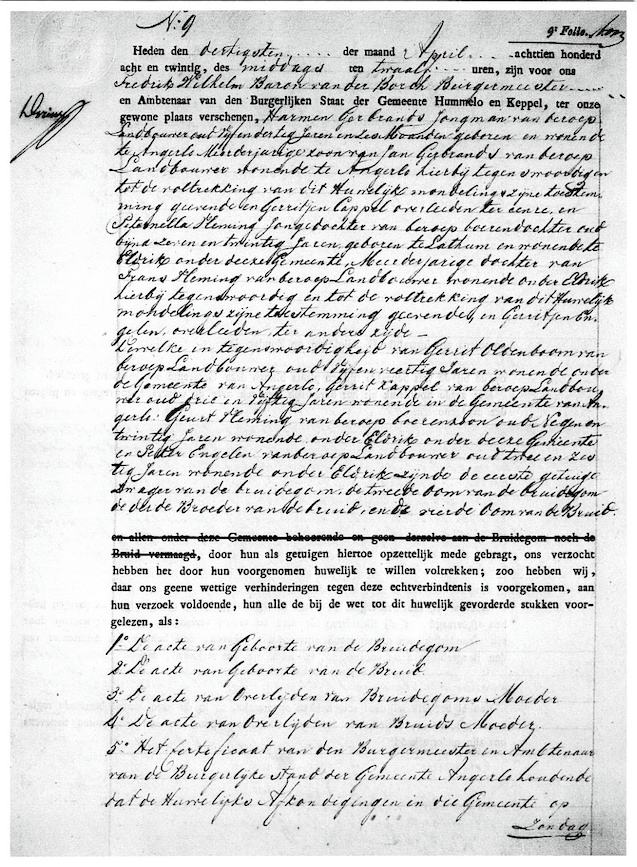 N: 9
9e Folio.
Heden den dertigsten der maand April achttien honderd
acht en twintig, des middags ten twaalf uren, zijn voor ons
Fredrik Wilhelm Baron van der Borch Burgermeester
en Ambtenaar van den Burgerlijken Staat der Gemeente Hummelo en Keppel, ter onze
gewone plaats verschenen, Harmen Gerbrands Jongman van beroep
Landbouwer out Vijf en dertig Jaren en zes Maanden geboren en wonende
te Angerlo Meerderjarige zoon van Jan Gerbrands van beroep
Landbouwer wonende te Angerlo hierbij tegenswoordig en
tot de voltrekking van dit Huwelijk mondelings zijne toestem-
ming geevende en Gerritjen Cappel overleeden ter eenre, en
Peternella Fleming Jongedochter van beroep boerendochter oud
bijna zeven en twintig Jaren, geboren te Lathum en wonende te
Eldrik onder deeze Gemeente, Meerderjarige dochter van
Frans Fleming van beroep Landbouwer wonende onder Eldrik
hierbij tegenswoordig en tot de voltrekking van dit Huwelijk
mondelings zijne toestemming geevende, en Gerritjen En-
gelen, overleeden, ter andere zijde –
Dewelke in tegenswoordigheid van Gerrit Oldenboom van
beroep Landbouwer oud Vijf en veertig Jaren wonende onder
de Gemeente van Angerlo, Gerrit Kappel van beroep Landbou-
wer oud drie en Vijftig Jaren wonende in de Gemeente van An-
gerlo: Geurt Fleming van beroep boerenzoon oud Negen en
twintig Jaren wonende onder Eldrik onder deeze Gemeente
en Peter Engelen van beroep Landbouwer oud twee en zes-
tig Jaren wonende onder Eldrik zijnde de eerste getuige
Zwager van de bruidegom, de tweede Oom van de bruidegom
de derde Broeder van de bruid, en de vierde Oom van de Bruid.
en allen onder deze Gemeente behoorende en geen derzelve aan de Bruidegom noch de
Bruid vermaagd, door hun als getuigen hiertoe opzettelijk mede gebragt, ons verzocht
hebben het door hun voorgenomen huwelijk te willen voltrekken; zoo hebben wij,
daar ons geene wettige verhinderingen tegen deze echtverbindtenis is voorgekomen, aan
hun verzoek voldoende, hun alle de bij de wet tot dit huwelijk gevorderde stukken voor-
gelezen, als:
1o De acte van Geboorte van de Bruidegom
2o De acte van Geboorte van de Bruid
3o De acte van Overlijden van Bruidegoms Moeder
4o De acte van Overlijden van Bruids Moeder.
5o Het certeficaat van den Burgermeester en Ambtenaar
van de Burgerlijke Stand der Gemeente Angerlo houdende
dat de Huwelijks Afkondegingen in die Gemeente op
Zondag